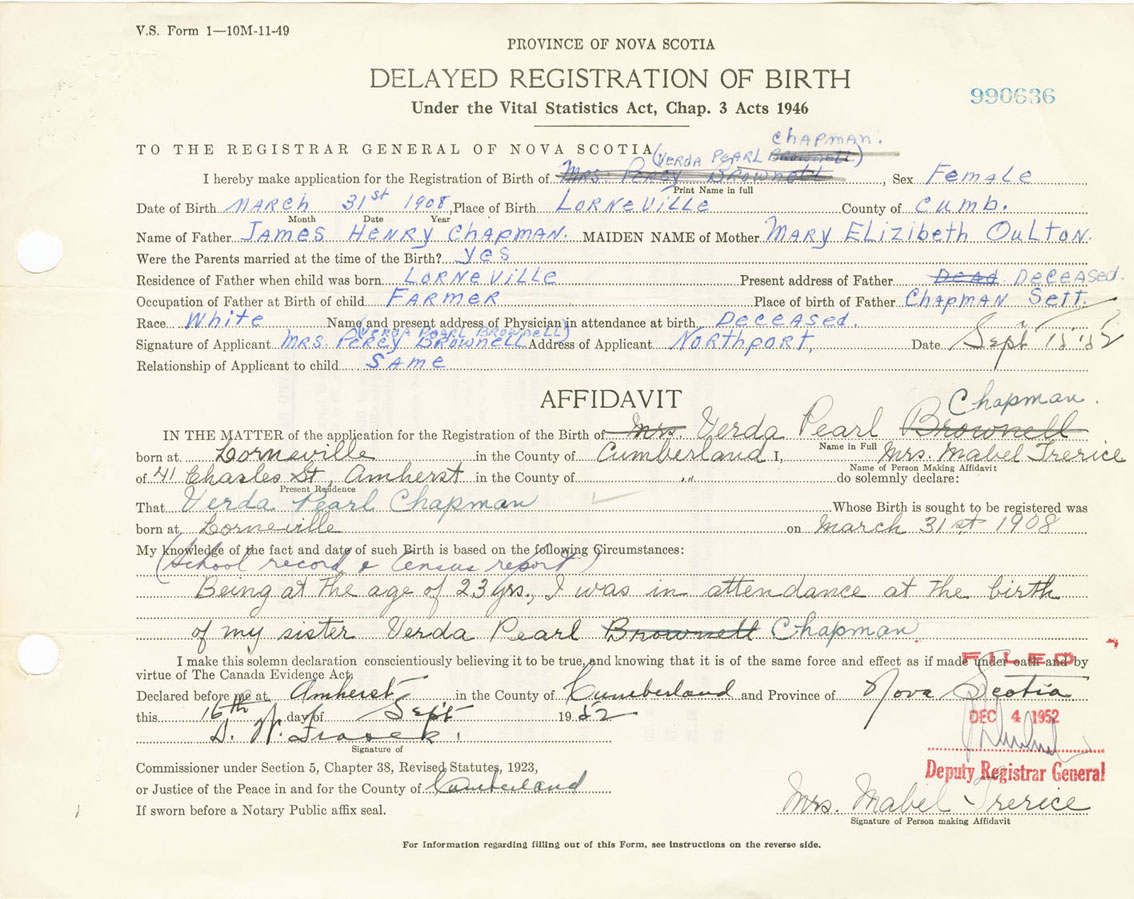 V.S. Form 1—10M-11-49
PROVINCE OF NOVA SCOTIA
DELAYED REGISTRATION OF BIRTH
990636
Under the Vital Statistics Act, Chap. 3 Acts 1946
CHAPMAN.
TO THE REGISTRAR GENERAL OF NOVA SCOTIA (VERDA PEARL BROWNELL)
I hereby make application for the Registration of Birth of MRS. PERCY BROWNELL, Sex FEMALE
Print Name in full
Date of Birth MARCH 31st 1908, Place of Birth LORNEVILLE County of CUMB.
Month Date Year
Name of Father JAMES HENRY CHAPMAN. MAIDEN NAME of Mother MARY ELIZIBETH OULTON.
Were the Parents married at the time of the Birth? YES
Residence of Father when child was born LORNEVILLE Present address of Father DEAD DECEASED.
Occupation of Father at Birth of child FARMER Place of birth of Father CHAPMAN SETT.
Race WHITE Name and present address of Physician in attendance at birth DECEASED.
(VERDA PEARL BROWNELL)
Signature of Applicant MRS. PERCY BROWNELL Address of Applicant NORTHPORT, Date Sept 15 '52
Relationship of Applicant to child SAME
AFFIDAVIT
Chapman.
IN THE MATTER of the application for the Registration of the Birth of Mrs. Verda Pearl Brownell
Name in Full
born at Lorneville in the County of Cumberland I, Mrs. Mabel Trerice
Name of Person Making Affidavit
of 41 Charles St, Amherst in the County of " do solemnly declare:
Present Residence
That Verda Pearl Chapman Whose Birth is sought to be registered was
born at Lorneville on March 31st, 1908
My knowledge of the fact and date of such Birth is based on the following Circumstances:
(School record & Census report)
Being at the age of 23 yrs., I was in attendance at the birth
of my sister Verda Pearl Brownell Chapman
I make this solemn declaration conscientiously believing it to be true, and knowing that it is of the same force and effect as if made under oath and by
FILED
virtue of The Canada Evidence Act,
Declared before me at Amherst in the County of Cumberland and Province of Nova Scotia
this 16th day of Sept 1952
DEC 4 1952
D. W. Fraser.
Signature of
Commissioner under Section 5, Chapter 38, Revised Statutes, 1923,
Deputy Registrar General
or Justice of the Peace in and for the County of Cumberland
Mrs. Mabel Trerice
If sworn before a Notary Public affix seal.
Signature of Person making Affidavit
For Information regarding filling out of this Form, see instructions on the reverse side.